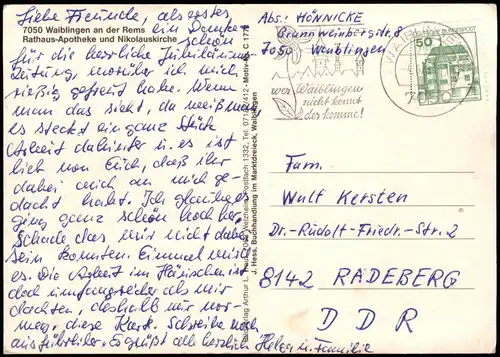 Liebe Freunde, als erstes
7050 Waiblingen an der Rems ein Danke-
Rathaus-Apotheke und Nikolauskirche schön
für die herrliche Jubiläums-
Zeitung, worüber ich mich
riesig gefreut habe. Wenn
man das sieht, da weiß man,
es steckt ein ganz Stück
Arbeit dahinter u. es ist
lieb von Euch, daß ihr
dabei auch an mich ge-
dacht habt. Ich glaube es
ging ganz schön hoch her.
Schade das wir nicht dabei
sein konnten. Einmal wird
es. Die Arbeit im Häuschen ist
doch umfangreicher als wir
dachten, deshalb nur vor-
weg, diese Karte. Schreibe noch
ausführlicher. Es grüßt alle herzlich Helga u. Familie
J. Hess, Buchhandlung im Marktdreieck, Waiblingen
Abs.: HÖNNICKE
Brunnweinbergstr. 8
7050 Waiblingen
wer Waiblingen
nicht kennt
der komme!
50
Fam.
Wulf Kersten
Dr.-Rudolf-Friedr.-Str. 2
8142 RADEBERG
DDR